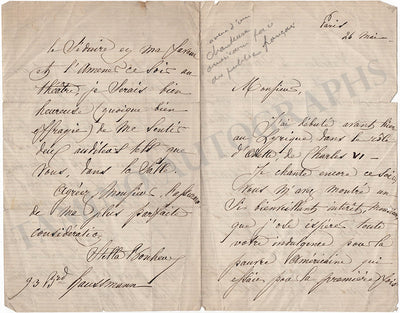 Paris
26 Mai
Monsieur,
J'ai débuté avant hier
au Lyrique dans le rôle
d'Odette, de Charles VI –
Je chante encore ce soir
Vous m'avez montré un
si bienveillant intérêt, Monsieur
que j'ose espérer toute
votre indulgence pour la
pauvre Américaine qui
pour la première fois
le Séduire et ma
et l'Amener ce soir au
théâtre, je serais bien
heureuse (quoique bien
effrayée) de me sentir
des auditeurs tels que
Vous, dans la Salle.
Agréez Monsieur
de ma plus parfaite
considération
Stella Bonheur
93 Bd Haussmann
chanteuse
américaine
au public français
AUTOGRAPHS